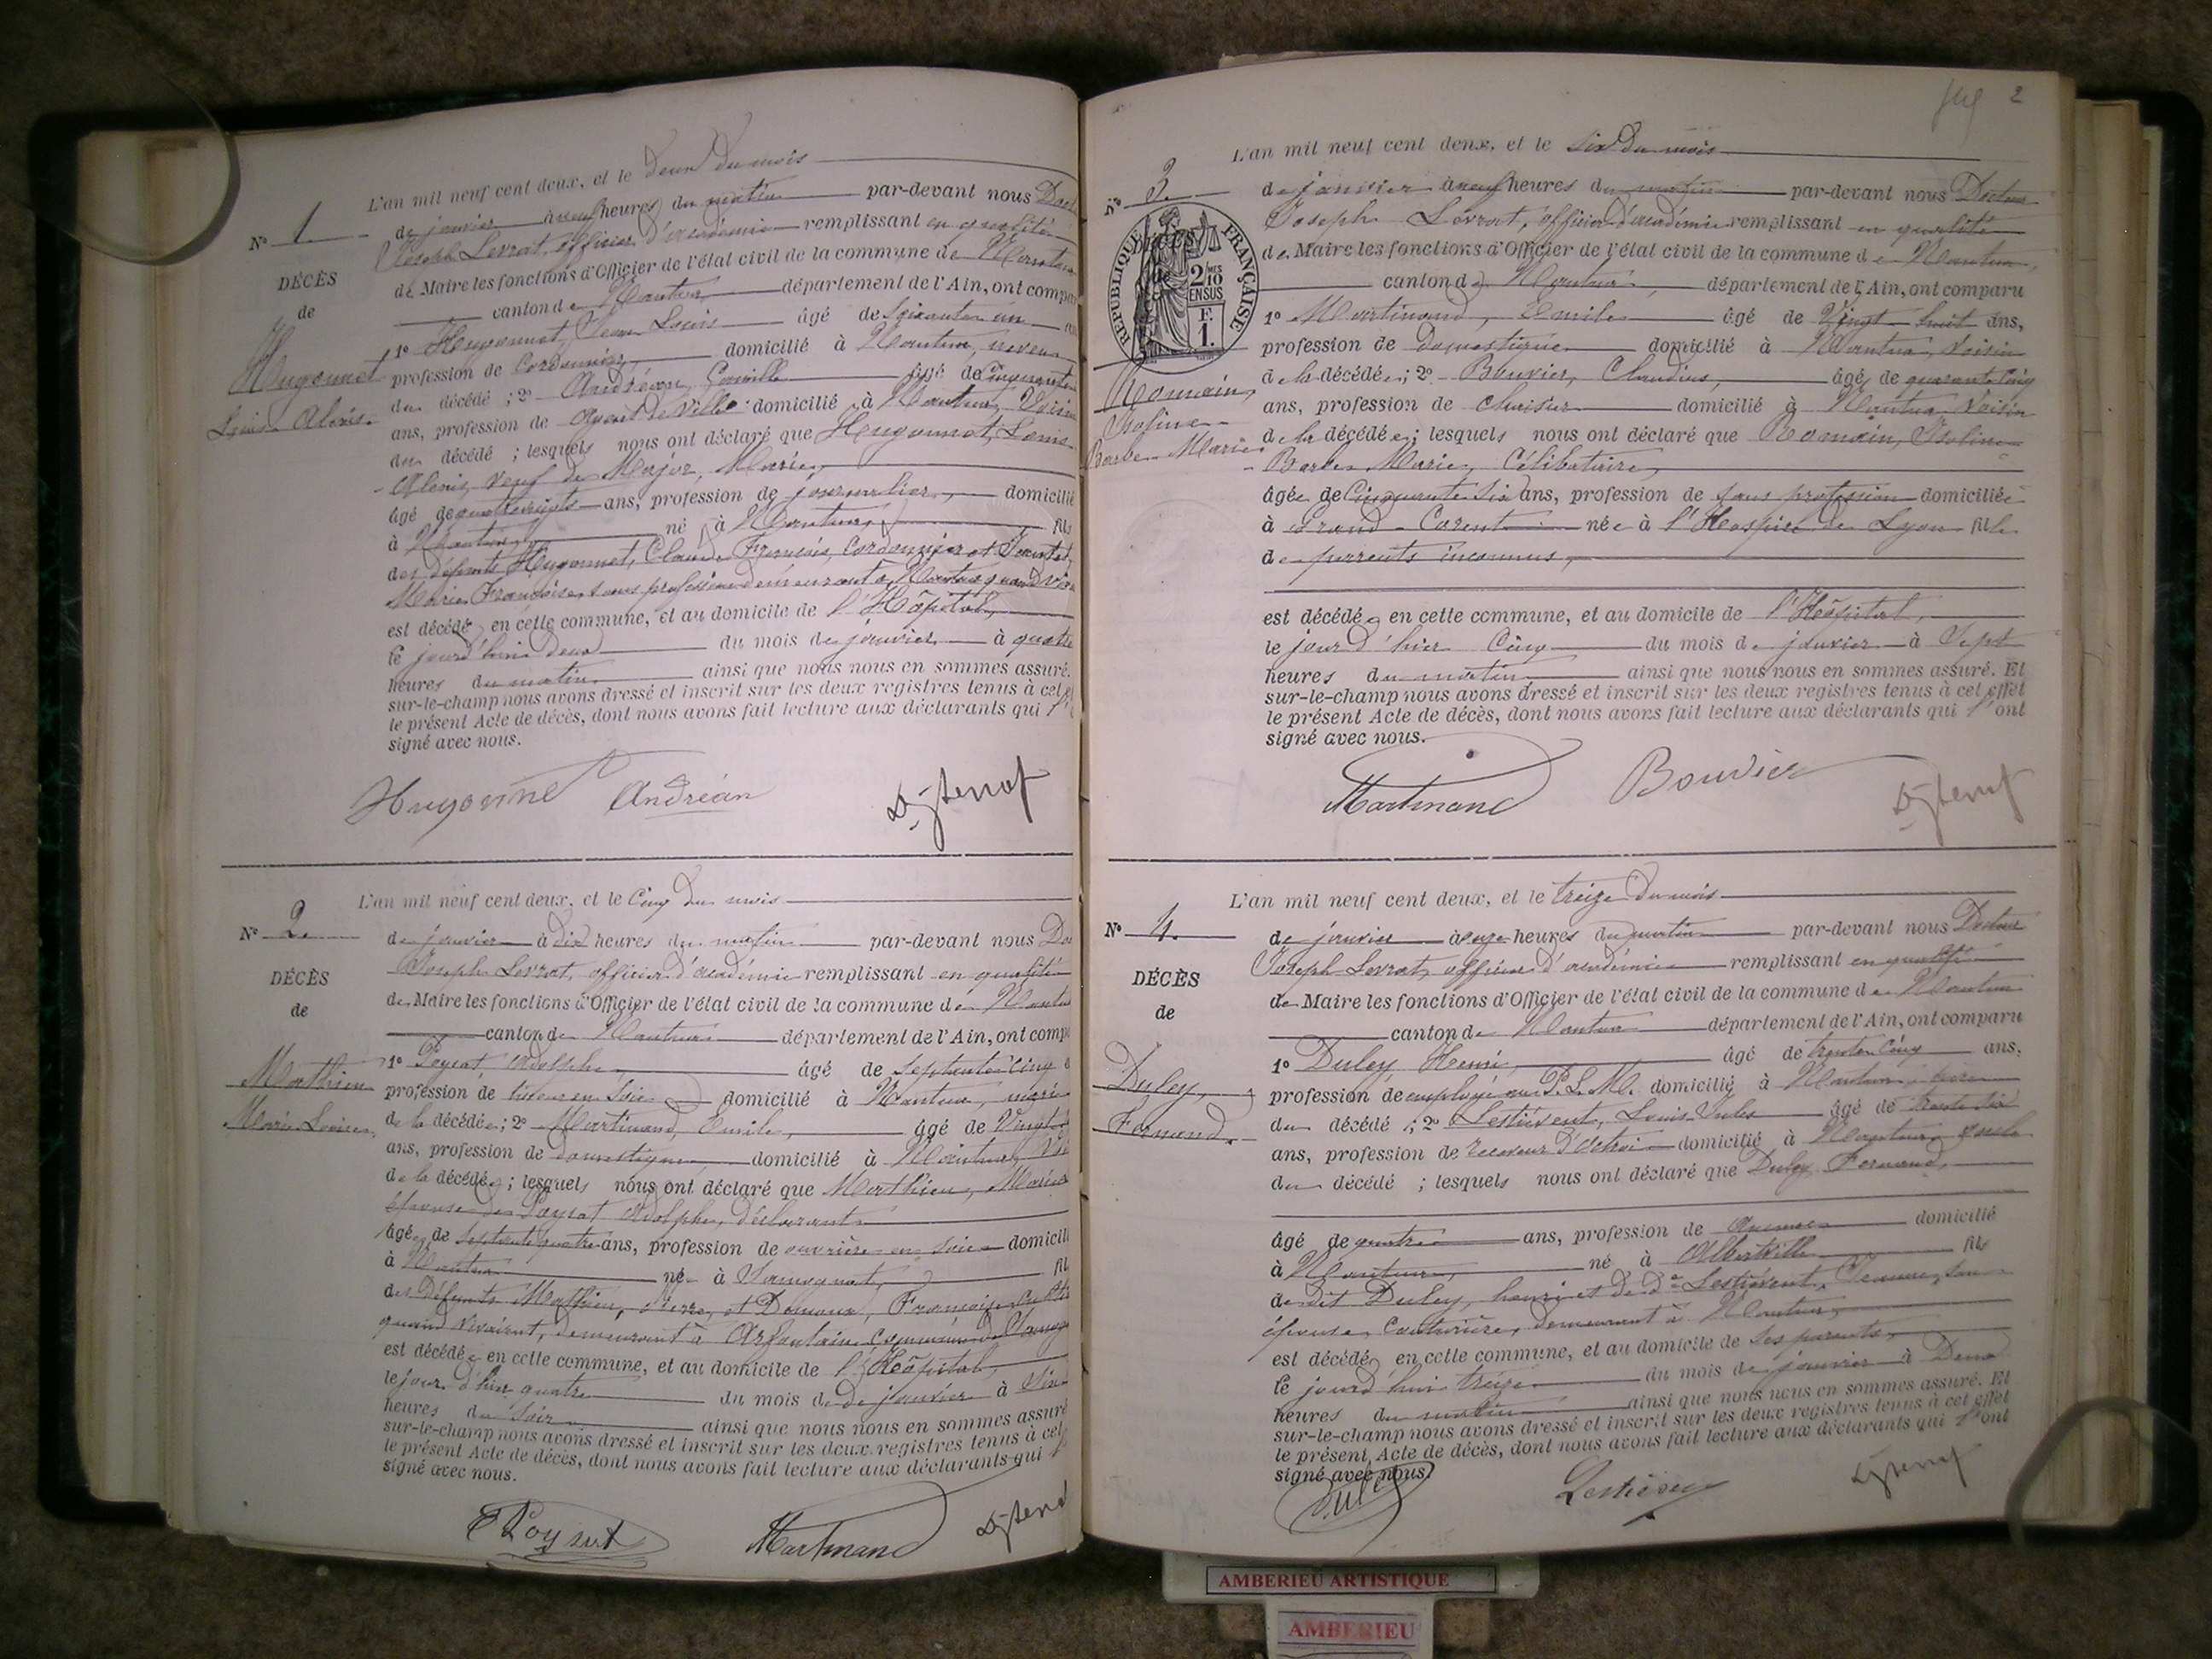 L'an mil neuf cent deux, et le deux du mois
de janvier à neuf heures du matin par-devant nous
Joseph Levrat, officier d'académie remplissant en qualité
de Maire les fonctions d'Officier de l'état civil de la commune de Nantua
canton de Nantua département de l'Ain, ont compar
1° Hugonnet, Jean Louis âgé de soixante un
profession de Cordonnier, domicilié à Nantua, neveu
du décédé ; 2° Andréan, Camille âgé de cinquante
ans, profession de Agent de Ville domicilié à Nantua, Voisin
du décédé ; lesquels nous ont déclaré que Hugonnet, Louis
Alexis, veuf de Major, Marie,
âgé de quatrevingts ans, profession de journalier, domicilié
à Nantua né à Nantua, fils
des défunts Hugonnet, Claude François, Cordonnier et
Marie Françoise, sans profession demeurant à Nantua quand
est décédé en cette commune, et au domicile de l'Hôpital,
le jourd'hui deux du mois de janvier à quatre
heures du matin ainsi que nous nous en sommes assuré.
sur-le-champ nous avons dressé et inscrit sur les deux registres tenus à cet
le présent Acte de décès, dont nous avons fait lecture aux déclarants qui l'
signé avec nous.
N° 1.
DÉCÈS
de
Hugonnet
Louis Alexis.
Hugonnet Andréan
L'an mil neuf cent deux, et le Cinq du mois
N° 2.
DÉCÈS
de
Mathieu
Marie Louise,
de janvier à dix heures du matin par-devant nous
Joseph Levrat, officier d'académie remplissant en qualité
de Maire les fonctions d'Officier de l'état civil de la commune de Nantua
canton de Nantua département de l'Ain, ont comp
1° Poysat, Adolphe, âgé de septante cinq
profession de tisseur en soie domicilié à Nantua, mari
de la décédée ; 2° Martinand, Emile, âgé de Vingt
ans, profession de domestique, domicilié à Nantua,
de la décédée ; lesquels nous ont déclaré que Mathieu, Marie
épouse de Poysat Adolphe, déclarant
âgée de septante quatre ans, profession de ouvrière en soie domicili
à Nantua né à Samognat,
des Défunts Mathieu, Pierre, et Françoise,
quand vivaient, demeurant à Arfontaine, Commune de
est décédée en cette commune, et au domicile de l'Hôpital,
le jour d'hier quatre du mois de de janvier à
heures du soir ainsi que nous nous en sommes assuré
sur-le-champ nous avons dressé et inscrit sur les deux registres tenus à cet
le présent Acte de décès, dont nous avons fait lecture aux déclarants qui
signé avec nous.
Poysat Martinand
2
L'an mil neuf cent deux, et le six du mois
N° 3.
RÉPUBLIQUE FRANÇAISE
2/10 MES
EN SUS
F.
1.
Romain,
Isoline
Barbe Marie
de janvier à neuf heures du matin par-devant nous Docteur
Joseph Levrat, officier d'académie remplissant en qualité
de Maire les fonctions d'Officier de l'état civil de la commune de Nantua,
canton de Nantua, département de l'Ain, ont comparu
1° Martinand, Emile âgé de Vingt huit ans,
profession de Domestique domicilié à Nantua, voisin
de la décédée ; 2° Bouvier, Claudius, âgé de quarante cinq
ans, profession de domicilié à Nantua Voisin
de la décédée ; lesquels nous ont déclaré que Romain, Isoline
Barbe Marie, Célibataire,
âgée de Cinquante six ans, profession de sans profession domiciliée
à Grand-Corent née à l'Hospice de Lyon fille
de parents inconnus,
est décédée en cette commune, et au domicile de l'Hôpital,
le jour d'hier Cinq du mois de janvier à Sept
heures du matin ainsi que nous nous en sommes assuré. Et
sur-le-champ nous avons dressé et inscrit sur les deux registres tenus à cet effet
le présent Acte de décès, dont nous avons fait lecture aux déclarants qui l'ont
signé avec nous.
Martinand Bouvier
L'an mil neuf cent deux, et le treize du mois
N° 4.
DÉCÈS
de
Duley,
Fernand.
de janvier à onze heures du matin par-devant nous Docteur
Joseph Levrat, officier d'académie remplissant en qualité
de Maire les fonctions d'Officier de l'état civil de la commune de Nantua
canton de Nantua département de l'Ain, ont comparu
1° Duley, Henri, âgé de trente cinq ans,
profession de employé au P.L.M. domicilié à Nantua, père
du décédé ; 2° Lestievent, Louis Jules âgé de trente six
ans, profession de receveur d'octroi domicilié à Nantua, oncle
du décédé ; lesquels nous ont déclaré que Duley Fernand,
âgé de quatre ans, profession de domicilié
à Nantua, né à Albertville fils
de dit Duley, henri et de d<sup>e</sup> Lestievent, Jeanne, son
épouse, Couturière, demeurant à Nantua,
est décédé en cette commune, et au domicile de ses parents,
le jourd'hui treize du mois de janvier à Deux
heures du matin ainsi que nous nous en sommes assuré. Et
sur-le-champ nous avons dressé et inscrit sur les deux registres tenus à cet effet
le présent Acte de décès, dont nous avons fait lecture aux déclarants qui l'ont
signé avec nous.
Duley
AMBERIEU ARTISTIQUE
AMBERIEU